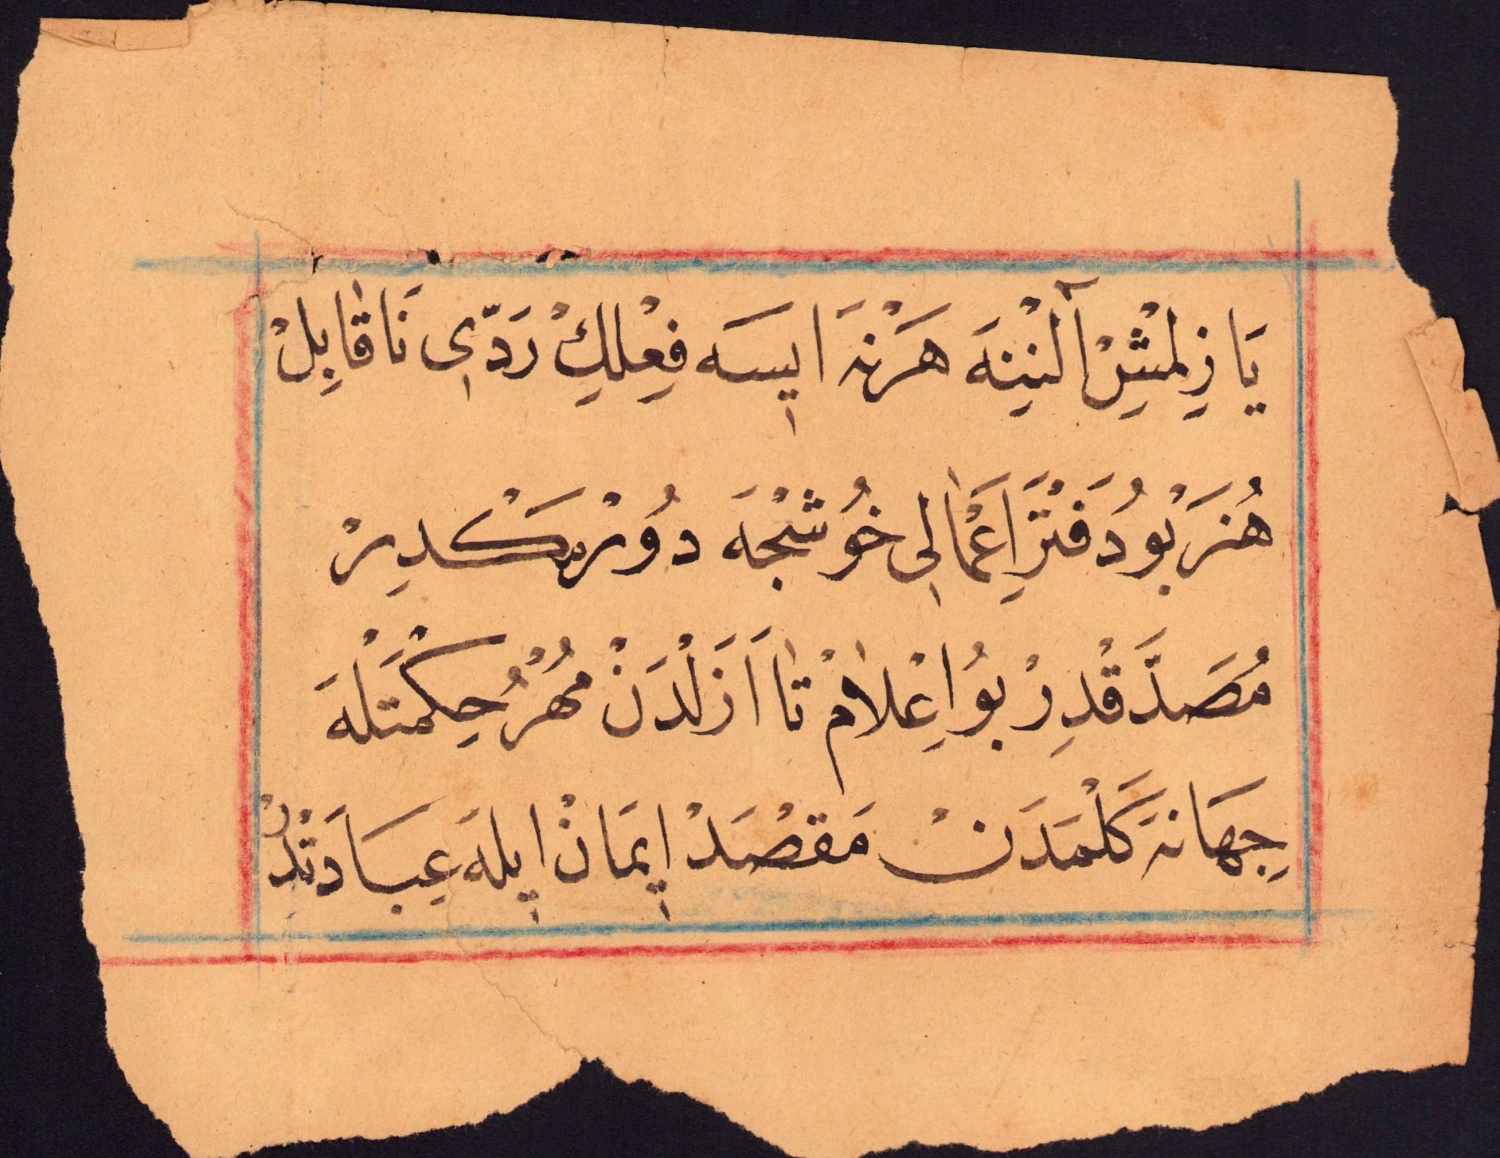 يَازِلْمِشْ آلْنِنِنْهَ هَرْنَهَ ايسَه فِعْلِكْ رَدّي نَاقَابِلْ
هُنَرْ بُو دَفْتَرِ اَعْمَالِي خُوشْجَه دُورْمَكْدِرْ
مُصَدَّقْدِرْ بُو اِعْلَامْ تَا اَزَلْدَنْ مُهْرُ حِكْمَتْلَهَ
جِهَانَهَ كَلْمَدَنْ مَقْصَدْ اِيمَانْ اِيلَهَ عِبَادَتْدِرْ